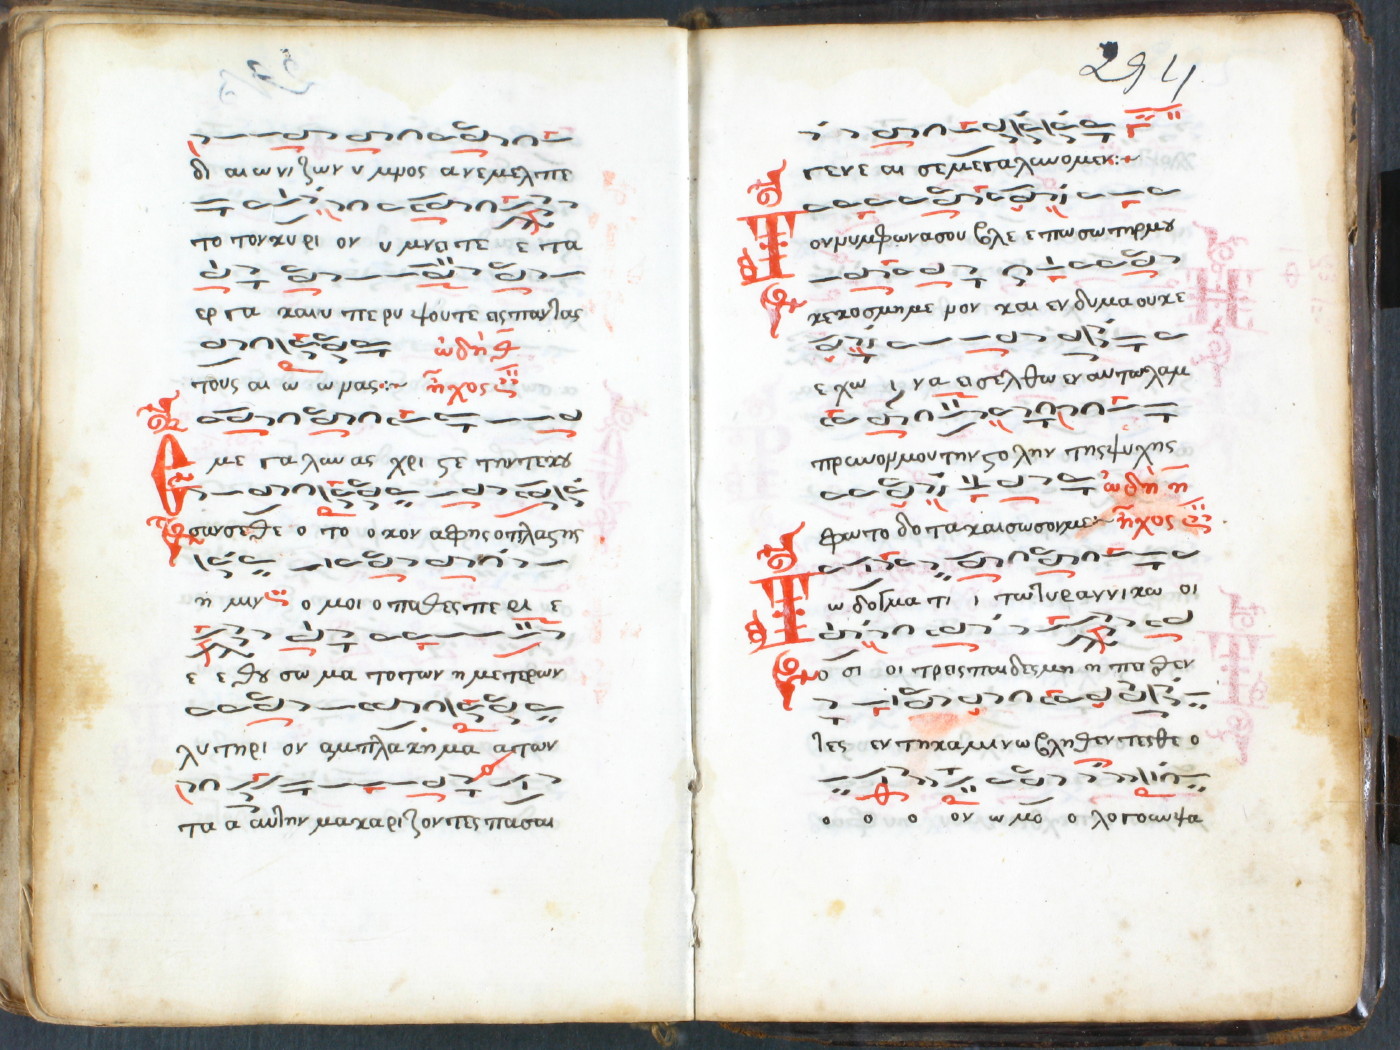 δι αι ω νι ζων υ μνος α νε μελ πε
το τον κυ ρι ον υ μνει τε ε τα
ερ γα και υ πε ρυ ψου τε εις παντας
τους αι ω ω νας:~ ὠδὴ θ
ἦχος
με γα λυν ας χρι στε την τε κου
σαν σε θε ο το ο κον αφ ης ο πλαστης
η μιν ο μοι ο πα θες πε ρι ε
ε ε θου σω μα το των η με τε ρων
λυ τη ρι ον αμ πλα κη μα α των
τα α αυτην μα κα ρι ζον τες πα σαι
294
γε νε αι σε με γα λυνομεν:~
Τον νυμφωνα σου βλε ε πω σω τηρ μου
κε κοσ μημε νον και εν δυμα ουκ ε
ε χω ι να εισ ελ θω εν αυ τω λαμ
πρυνον μου την στο λην της ψυ χης
φω το δο τα και σωσον με ὠδὴ η
ἦχος
Τω δογμα τι ι τω τυραννικω οι
ο σι οι τρεις παι δες μη η πει θεν
τες εν τη κα μι νω βλη θεν τες θε ο
ο ο ο ον ω μο ο λο γουν ψα